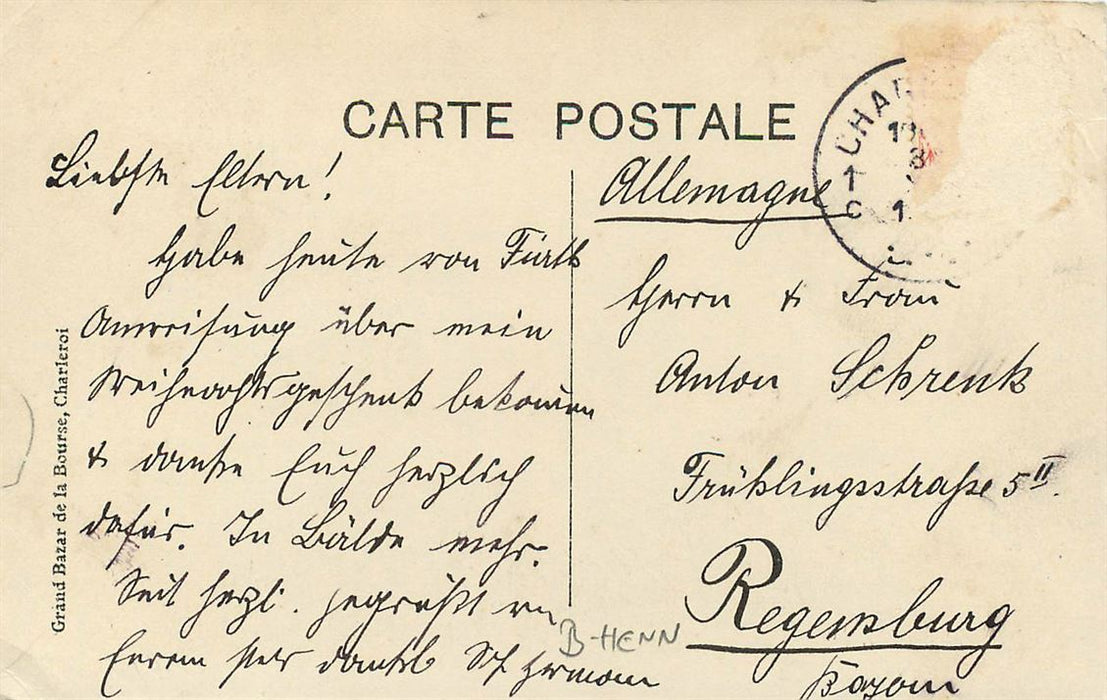 CARTE POSTALE
Liebste Eltern!
Habe heute von Fürth
Anweisung über mein
Weihnachtsgeschenk bekommen
& danke Euch herzlich
dafür. In Bälde mehr.
Seit herzl. gegrüßt von
Eurem stets dankb. Hermann
Allemagne
Herrn & Frau
Anton Schrenk
Frühlingsstraße 5 II.
Regensburg
Bayern
B-HENN
Grand Bazar de la Bourse, Charleroi
CHAR
1
C